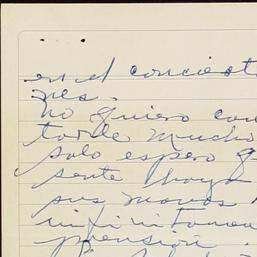 en el conciert
nes.
no quiero con
tarde mucho
solo espero q
sente haya
sus manos
infinitamen
prensión.